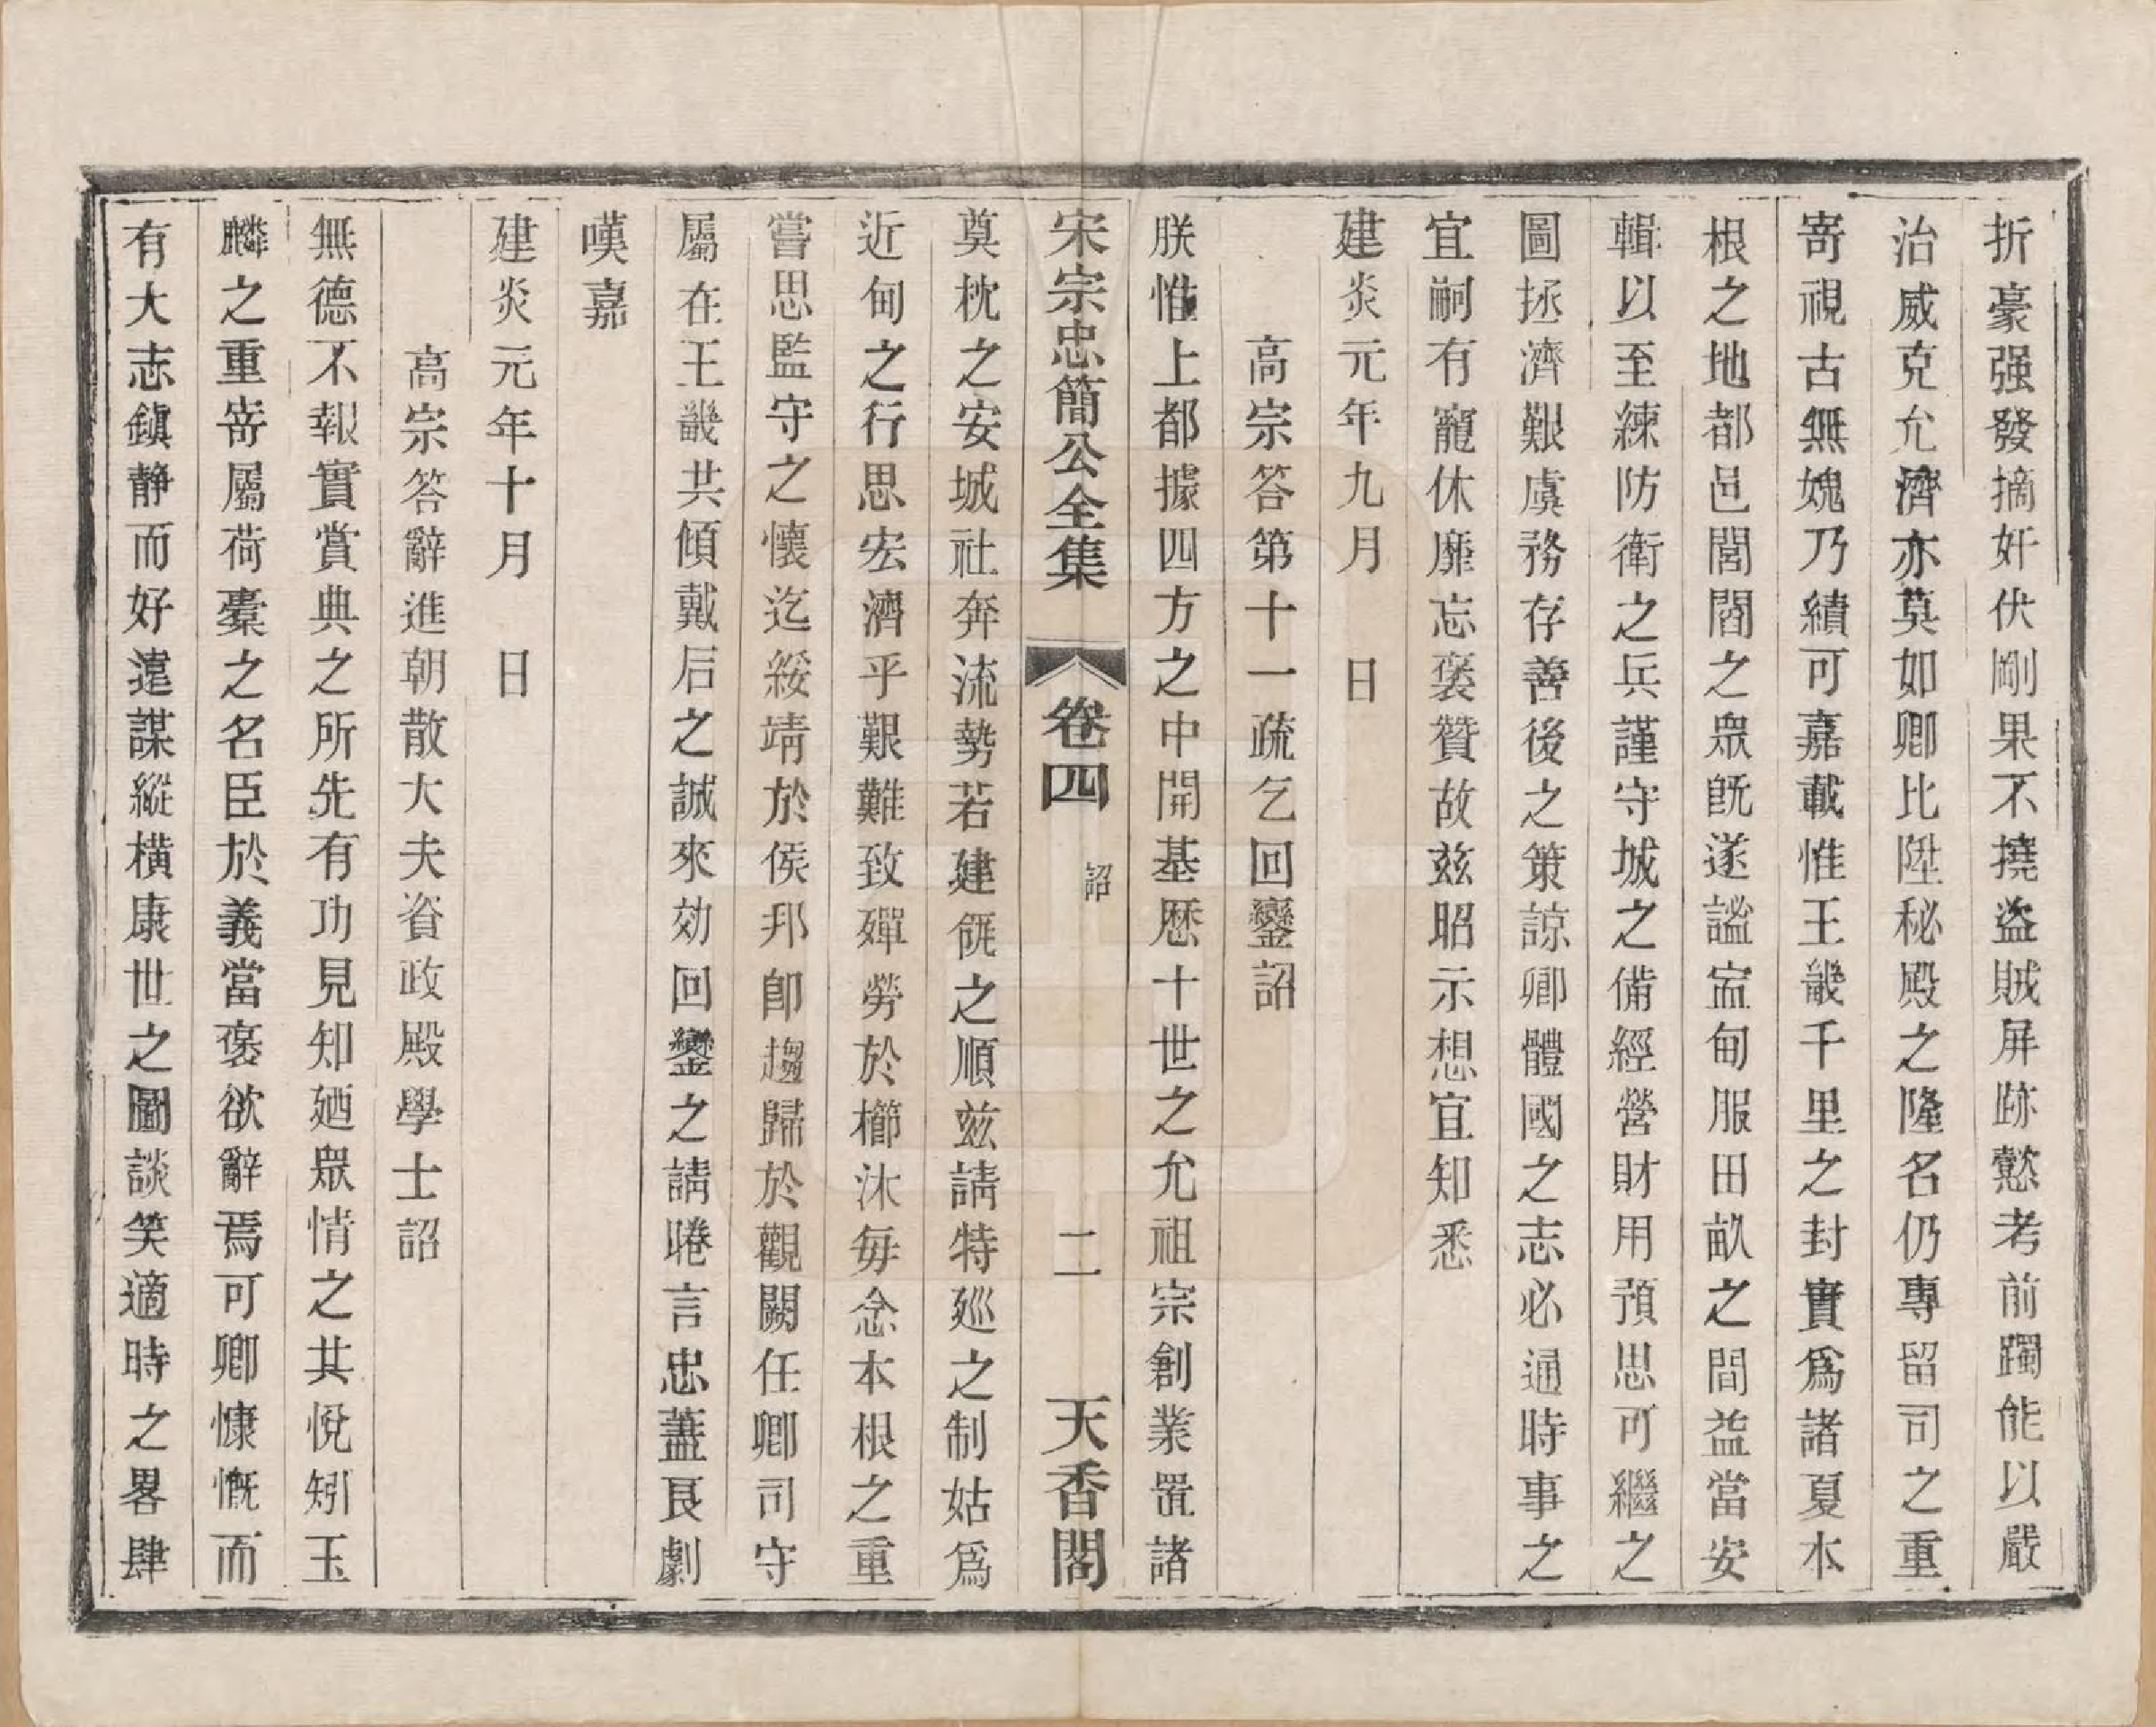 折豪强發摘奸伏剛果不撓盜賊屏跡愁考前躅能以嚴
治威克允濟亦莫如卿比陞秘殿之隆名仍專留司之重
寄視古無媿乃績可嘉載惟王畿千里之封實爲諸夏本
根之地都邑閭閻之眾旣遂謐寍甸服田畝之間益當安
輯以至練防衛之兵謹守城之備經營財用預思可繼之
圖拯濟艱虞務存善後之策諒卿體國之志必通時事之
宜嗣有寵休靡忘褒贊故茲昭示想宜知悉
建炎元年九月　日
高宗答第十一疏乞回鑾詔
朕惟上都據四方之中開基歷十世之允祖宗創業置諸
宋宗忠簡公全集　卷四　詔　二　天香閣
奠枕之安城社奔流勢若建瓴之順茲請特廵之制姑爲
近甸之行思宏濟乎艱難致殫勞於櫛沐每念本根之重
嘗思監守之懷迄綏靖於侯邦卽趨歸於觀闕任卿司守
屬在王畿共傾戴后之誠來効回鑾之請睠言忠藎良劇
嘆嘉
建炎元年十月　日
高宗答辭進朝散大夫資政殿學士詔
無德不報實賞典之所先有功見知廼眾情之共悅矧玉
麟之重寄屬荷橐之名臣於義當褒欲辭焉可卿慷慨而
有大志鎭靜而好遠謀縱橫康世之圖談笑適時之畧肆